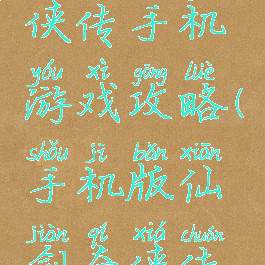 侠传手机
yóu xì gōng lüè
游戏攻略(
shǒu jī bǎn xiān
手机版仙
jiàn qí xiá chuán
剑奇侠传